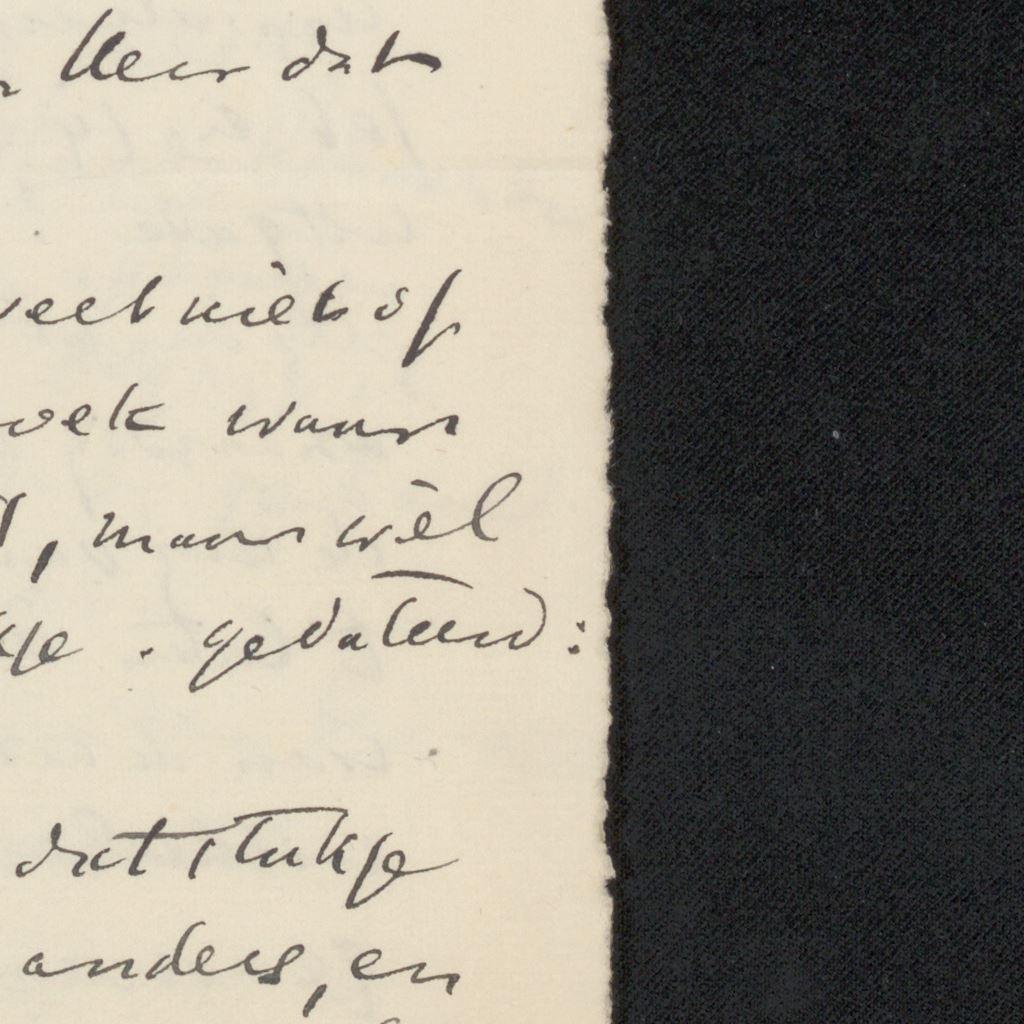 keer dat
weet niet of
oek waar
, maar wèl
kje. gedateerd:
dat stukje
anders, en